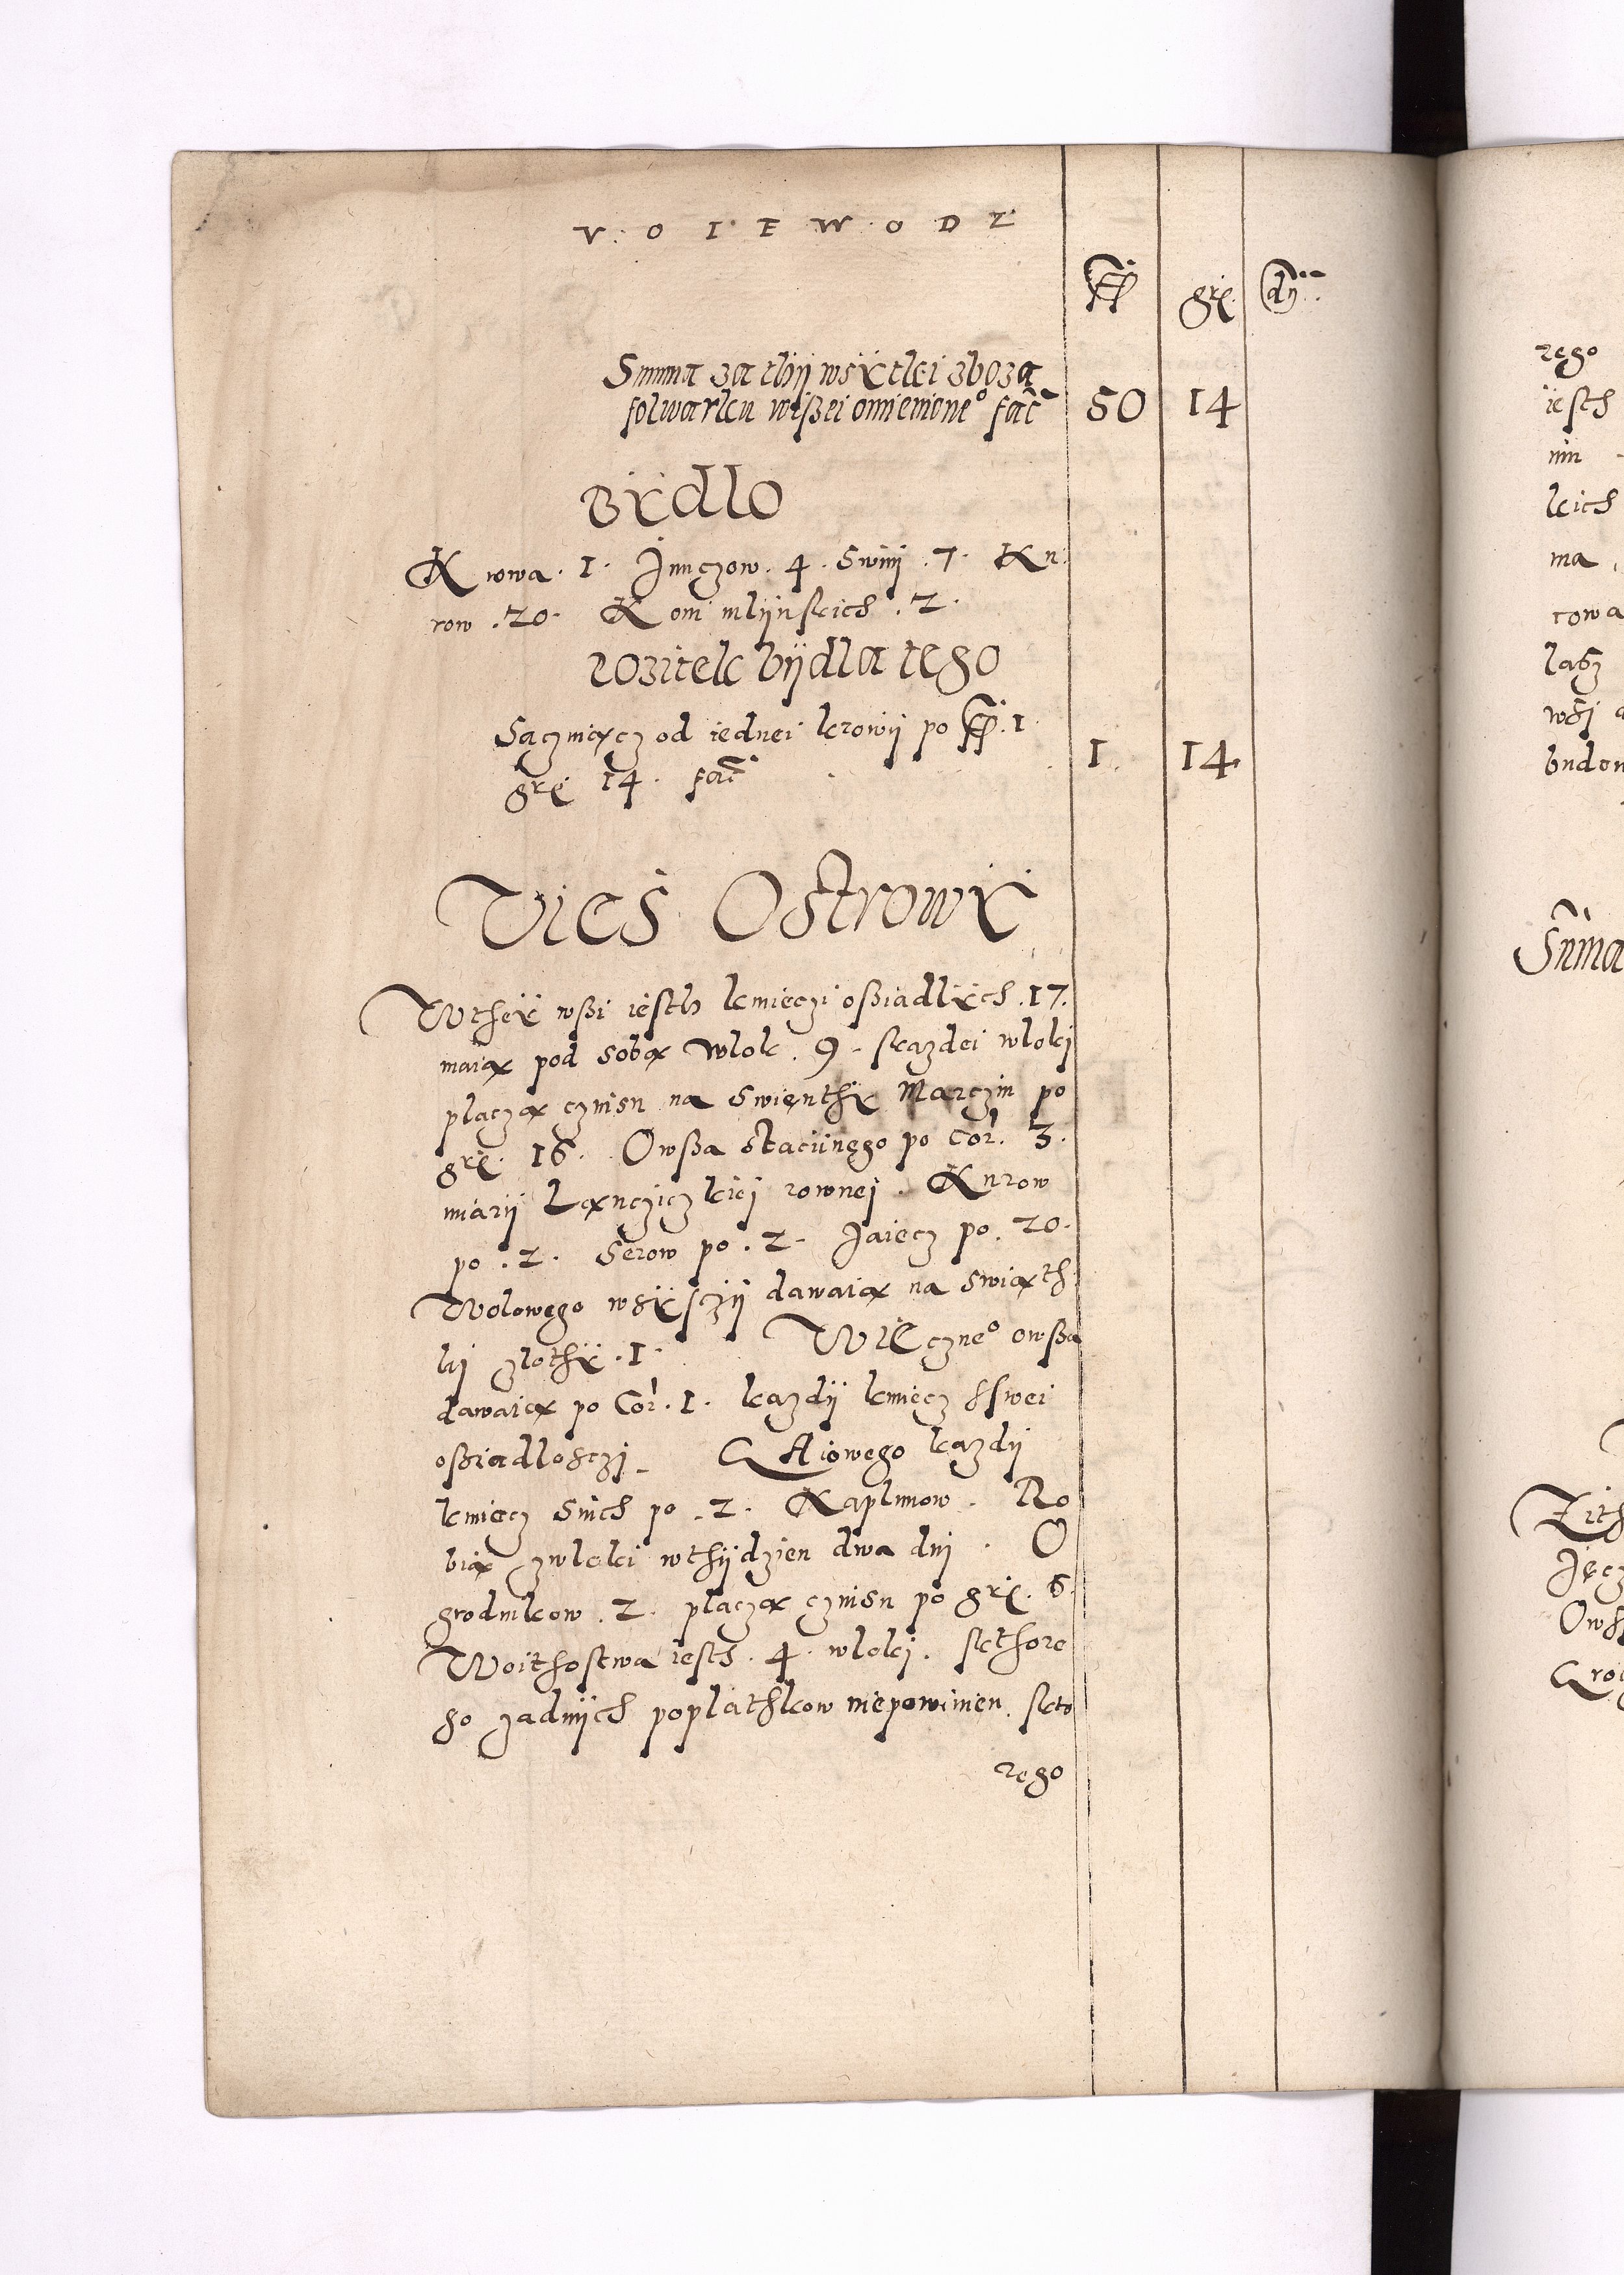 V O I E W O D Z
fl gr dn
Summa za thy wsytki zboza
folwarku wyßei omienione° fac̃ 50 14
Bydlo
Krowa . 1 . Junczow . 4 . Swinj . 7 . Ku
row . 20 . Koni mlynskich . 2 .
Pozitek bydla tego
Saczuiącz od iednei krowy po fl. 1
gr 14 . fac̃ 1 . 14
Vies Ostrowy
W they wßi iesth kmieczi oßiadlych . 17 .
maią pod sobą wlok . 9 . skazdei wloki
placzą czinsu na Swięnthy Marczin po
gr . 16 . Owßa stacijnego po cor. 3 .
miary Lęnczyczkiej rownej . Kurow
po . 2 . Serow po . 2 . Jaiecz po . 20 .
Wolowego wsysczy dawaią na swiąth
ki zlothy . 1 . Wiecznе° owßa
dawaią po Cor . 1 . kazdy kmiecz sswei
oßiadlosczi _ Gaiowego kazdy
kmiecz snich po . 2 . Kaplunow . Ro
bią zwloki wthydzien dwa dnj . O
grodnikow . 2 . placzą czinsu po gr . 6 .
Woithostwa iesth . 4 . wloki . sktore
go zadnych poplathkow niepowinien . skto
rego
rego
iesth
nin
kich
ma
cowa
lasz
wsi
budow
Suma
Zith
Jęcz
Ows
Groc